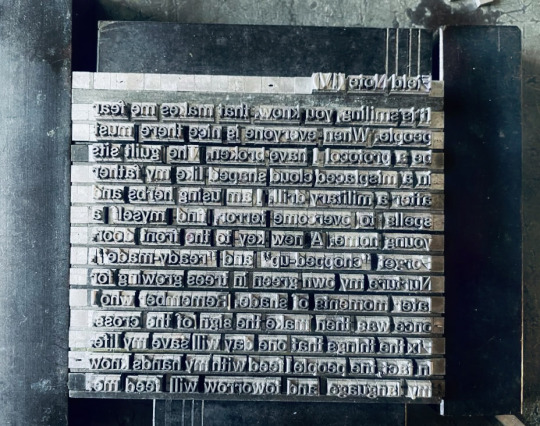 Field Note
It is smiling, you know, that makes me fear
people. When everyone is nice there must
be a protocol I have broken. The guilt sits
in a misplaced cloud shaped like my father
after a military drill. I am using herbs and
spells to overcome terror, find myself a
young home. A new key to the front door.
Forget “chopped-up” and “ready-made”.
Nurture my own green in trees growing for
later moments of shade. Remember who I
once was, then make the sign of the cross.
Fix the things that one day will save my life
the people I feed with my hands know
my language and tomorrow will feed me